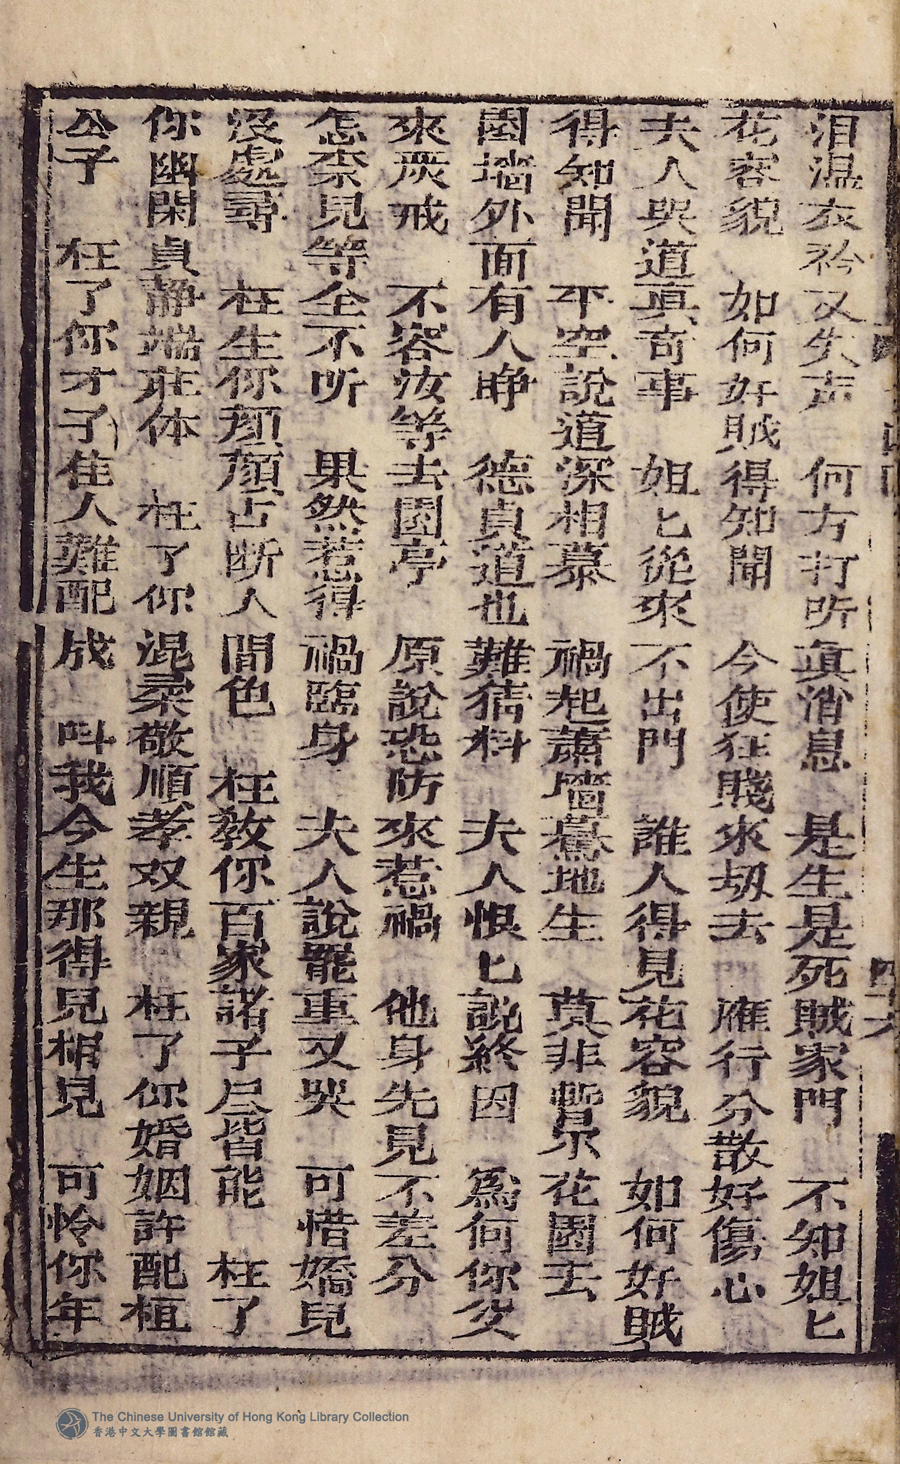 泪温衣衿又失声　何方打听真消息　是生是死賊家門　不知姐匕
花容貌　如何奸賊得知聞　今使狂賤來刼去　雁行分散好傷心
夫人哭道真奇事　姐匕從來不出門　誰人得見花容貌　如何奸賊
得知聞　平空說道深相慕　禍起蕭墻驀地生　莫非暫尔花園去
園墻外面有人睁　德貞道也難猜料　夫人恨匕說終因　為何你父
來灰戒　不容汝等去園亭　原說恐防來惹禍　他身先見不差分
怎柰兒等全不听　果然惹得禍臨身　夫人說罷重又哭　可惜嬌兒
没處尋　枉生你顏顏占断人間色　枉教你百家諸子尽皆能　枉了
你幽閑貞静端莊体　枉了你混柔敬順孝双親　枉了你婚姻許配桓
公子　枉了你才子佳人難配成　叫我今生那得見相見　可怜你年
四十六
The Chinese University of Hong Kong Library Collection
香港中文大學圖書館館藏